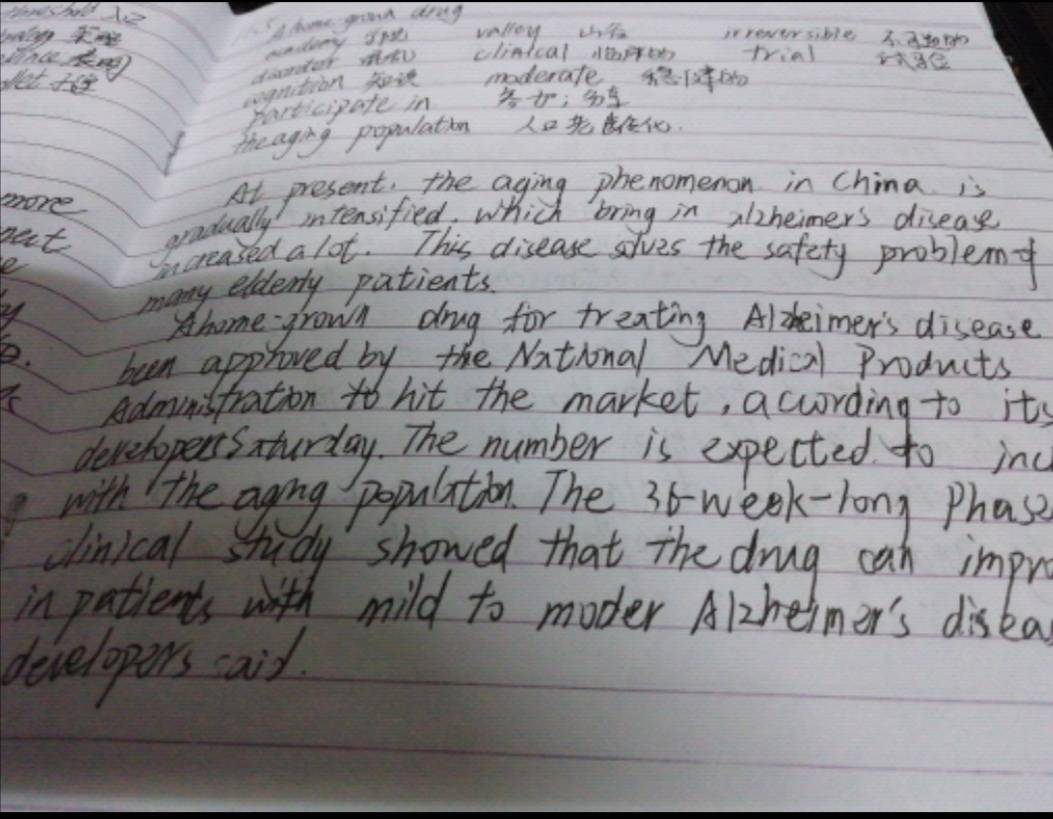 threshold 入口
valley
irreversible 不可逆的
disorder 混乱
clinical 临床的
trial 试验
cognition 知识
moderate 稳健的
participate in 参加；分享
the aging population 人口老龄化.
more
At present. the aging phenomenon in China is
gradually intensified. which bring in alzheimer's disease
increased a lot. This disease solves the safety problem of
many elderly patients.
A home-grown drug for treating Alzheimer's disease
been approved by the National Medical Products
Administration to hit the market, according to its
developers Saturday. The number is expected to inc
with the aging population. The 36-week-long Phase
clinical study showed that the drug can impro
in patients with mild to moder Alzheimer's disea
developers said.